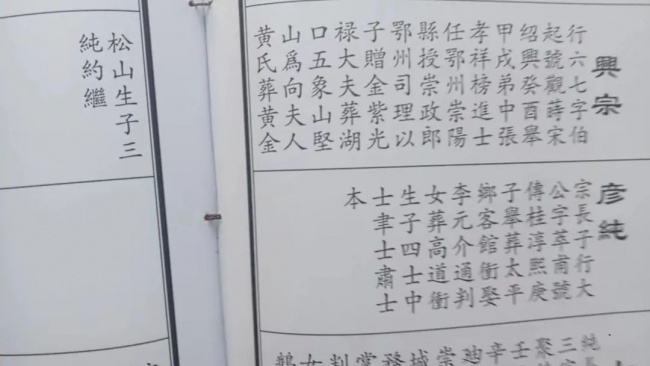 興宗
行六七字伯
起號觀蒔宋
绍興癸酉舉
甲戌弟中張
孝祥榜進士
任鄂州崇陽
縣授崇政郎
鄂州司理以
子贈金紫光
禄大夫葬湖
口五象山堅
山爲向夫人
黄氏葬黄金
彦純
宗長子行大
公字萃甫號
傳桂淳熙庚
子舉葬太平
鄉客館衝娶
李元介通判
女葬高道衝
生子四士中
士聿士肅士
本
純長
三
聚
壬
辛
迪
崇
城
務
判
女
鵝
松山生子三
純約繼